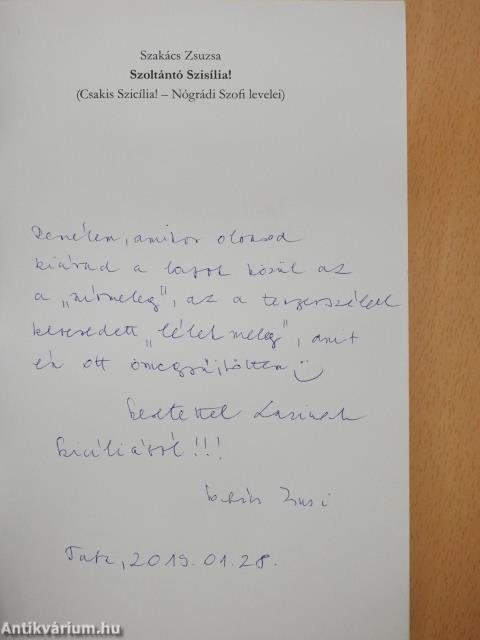 Szakács Zsuzsa
Szoltántó Szisília!
(Csakis Szicília! – Nógrádi Szofi levelei)
Remélem, amikor olvasod
kiárad a lapok közül az
a „nívmeleg", az a tengerszéllel
keveredett „lélekmeleg", amit
én ott ömegyűjtöttem
Szeretettel
Szicíliából!!!
Zsuzsi
Tata, 2019.01.28.
Antikvárium.hu